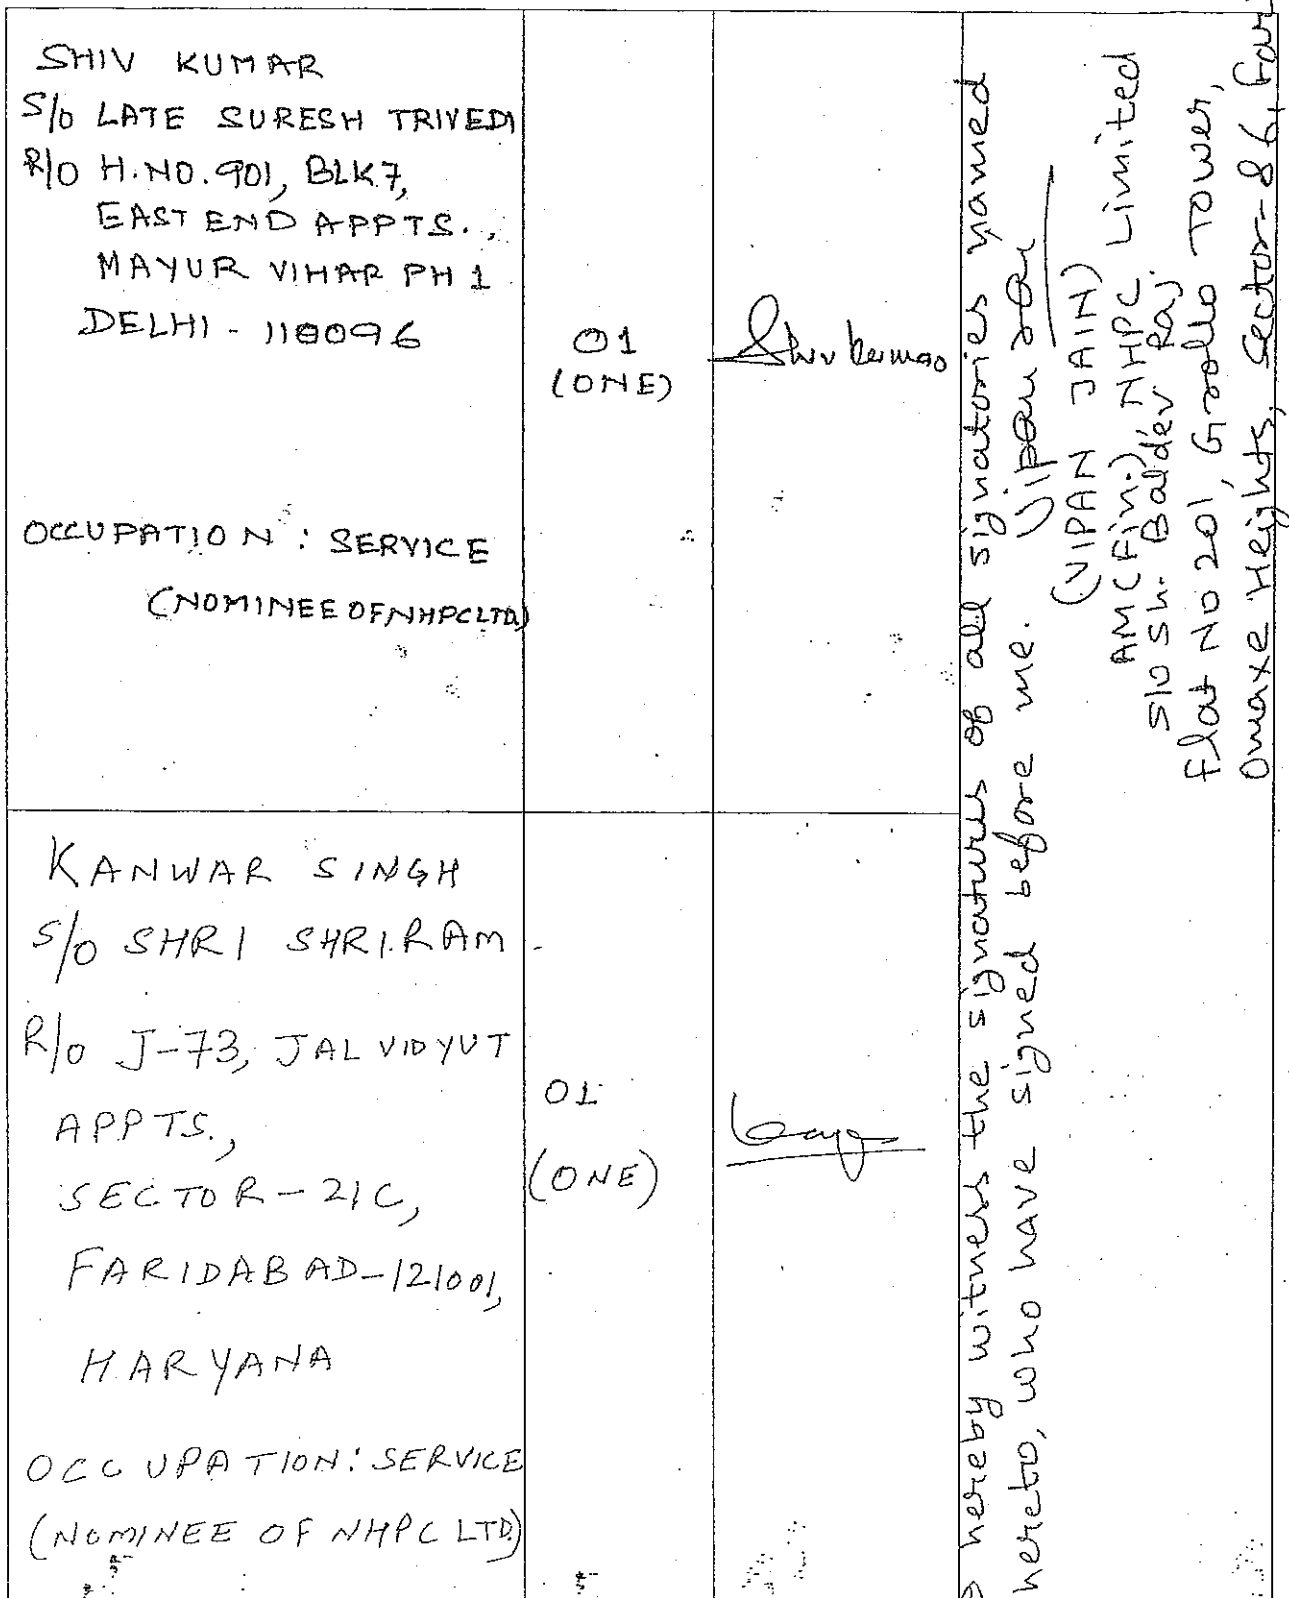 SHIV KUMAR
S/o LATE SURESH TRIVEDI
R/O H.NO.901, BLK7,
EAST END APPTS.,
MAYUR VIHAR PH 1
DELHI - 110096
OCCUPATION : SERVICE
(NOMINEE OF NHPC LTD.)
01
(ONE)
Shiv kumar
KANWAR SINGH
S/o SHRI SHRI.RAM
R/o J-73, JAL VIDYUT
APPTS.,
SECTOR-21C,
FARIDABAD-121001,
HARYANA
OCCUPATION: SERVICE
(NOMINEE OF NHPC LTD.)
01
(ONE)
hereby witness the signatures of all signatories named
hereto, who have signed before me. Vipan
(VIPAN JAIN)
AM(Fin.), NHPC Limited
S/o Sh. Baldev Raj
Flat No 201, Tower,
Omaxe Heights, Sector-86,